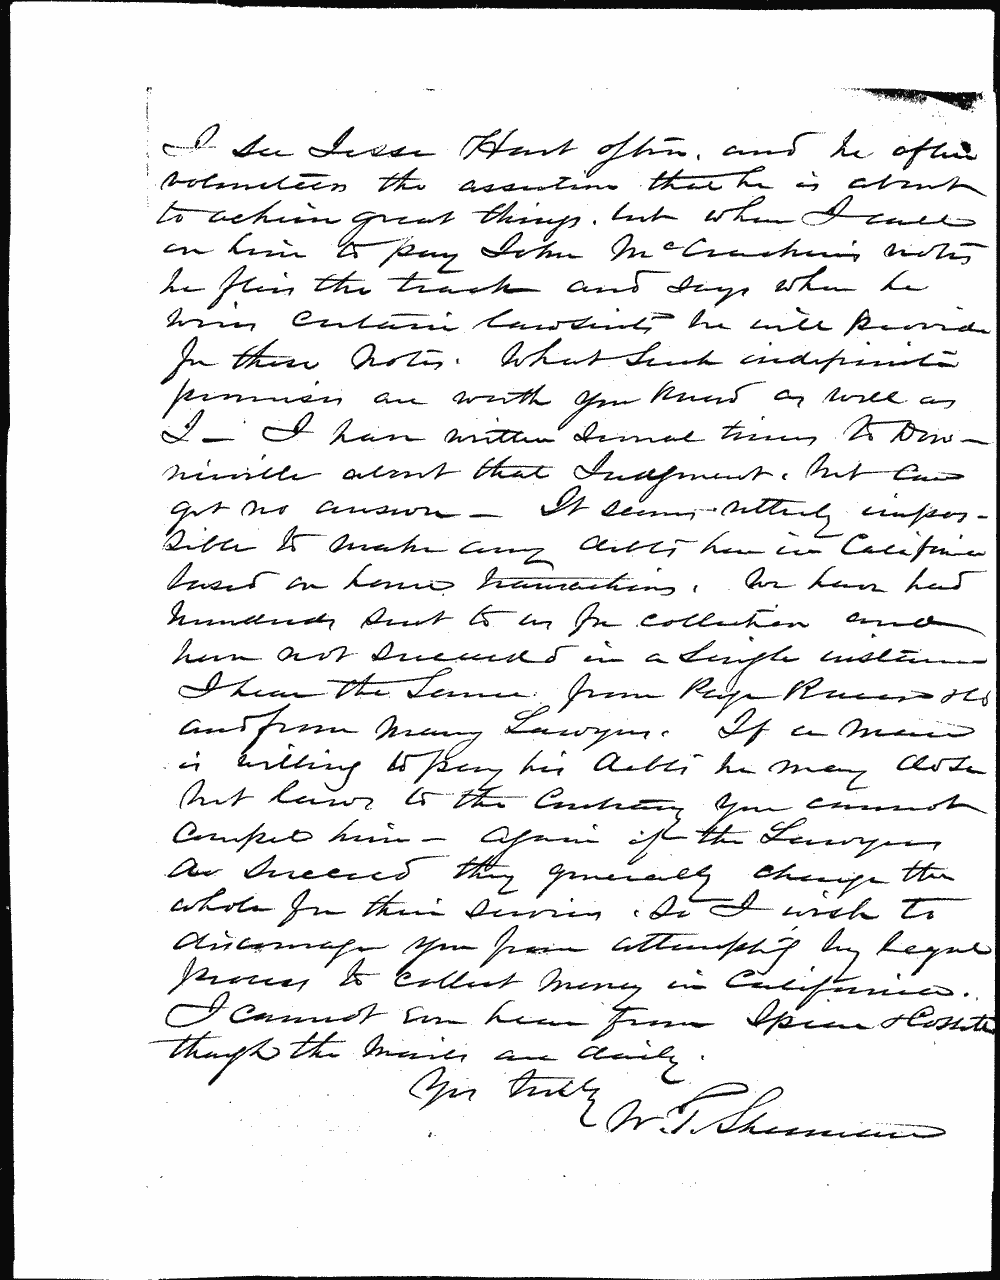 I see Jesse Hart often. and he often
volunteers the assertion that he is about
to achieve great things. but when I call
on him to pay John McCrackin's notes
he flies the track and says when he
wins certain lawsuits he will provide
for these notes. What such indefinite
promises are worth you know as well as
I — I have written several times to Dow-
nieville about that Judgment. but can
get no answer — It seems utterly impos-
sible to make any debts here in California
based on home transactions. We have had
hundreds sent to us for collection and
have not succeeded in a single instance
I hear the same from Page Bacon & Co
and from many Lawyers. If a man
is willing to pay his debts he may do so
but laws to the contrary you cannot
compel him — again if the Lawyers
do succeed they generally charge the
whole for their services. So I wish to
discourage you from attempting by legal
process to collect money in California.
I cannot even hear from
though the mails are daily.
Yrs truly
W. T. Sherman